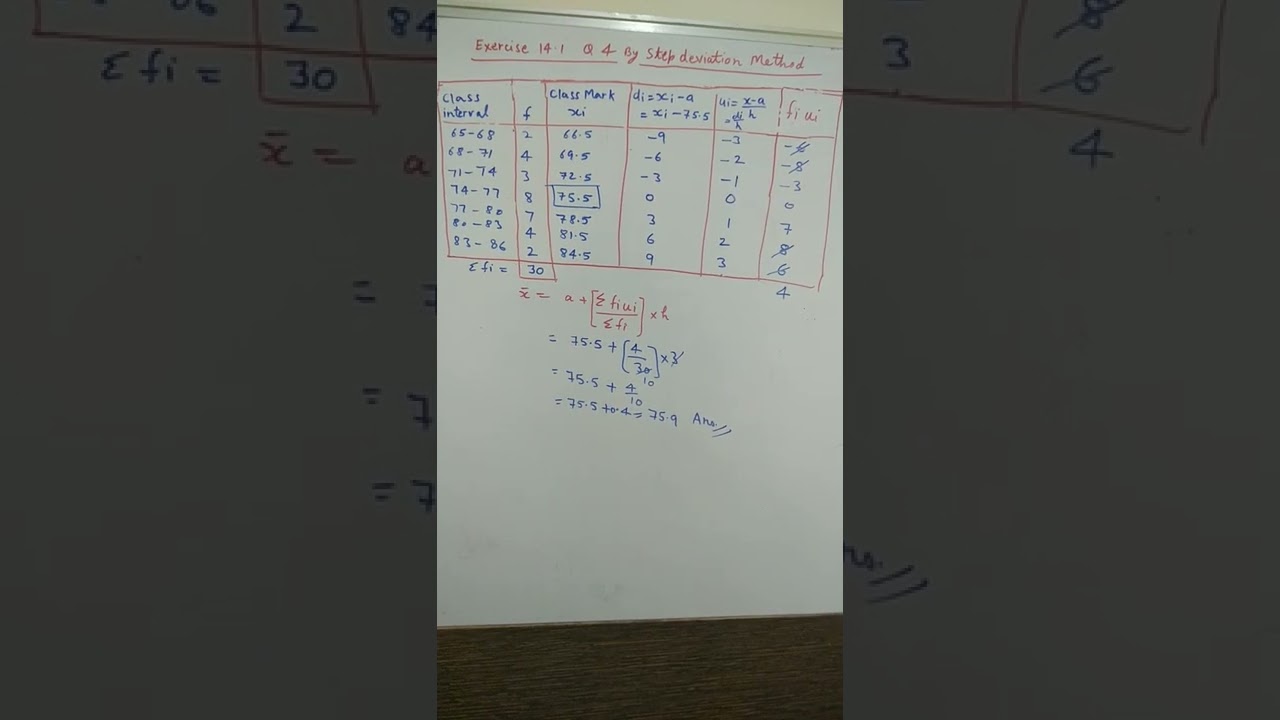 Exercise 14.1 Q 4 By Step deviation Method
Class interval f Class Mark xi di = xi - a = xi - 75.5 ui = x-a/h = di/h fi ui
65-68 2 66.5 -9 -3 -6
68-71 4 69.5 -6 -2 -8
71-74 3 72.5 -3 -1 -3
74-77 8 75.5 0 0 0
77-80 7 78.5 3 1 7
80-83 4 81.5 6 2 8
83-86 2 84.5 9 3 6
Σfi = 30 4
x̄ = a + [Σfiui/Σfi] × h
= 75.5 + [4/30] × 3
10
= 75.5 + 4/10
= 75.5 + 0.4 = 75.9 Ans.